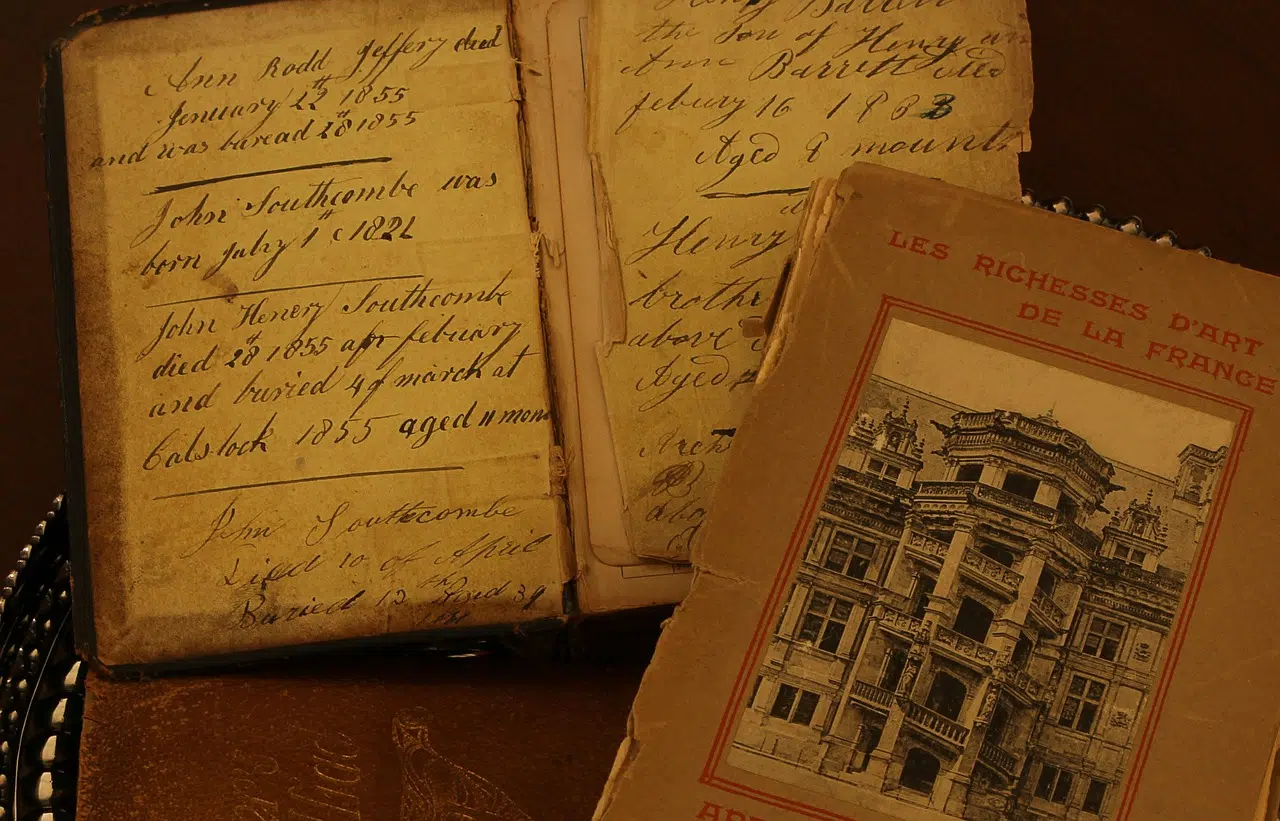 Ann Rodd Jeffery died
January 22th 1855
and was buread 28th 1855
John Southcombe was
born July 1th 1821
John Henery Southcombe
died 28th 1855 apr febuary
and buried 4 of march at
Calstock 1855 aged 11 mon
John Southcombe
Died 10 of April
Buried 13th Aged 39
Henry Barrett
the son of Henry an
Ann Barrett died
febury 16 1883
Aged 8 mount
Henry
brothe
above
Aged
LES RICHESSES D'ART
DE LA FRANCE